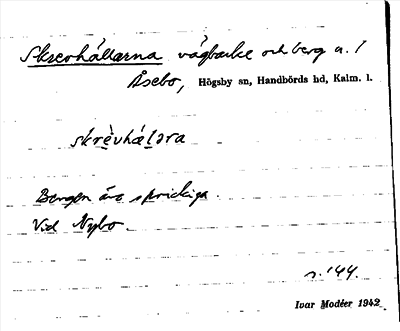 Skrevhällarna vägbacke och berg a. /
Åsebo, Högsby sn, Handbörds hd, Kalm. l.
skrèvhálara
Bergen äro sprickiga.
Vid Nybo.
s. 144.
Ivar Modéer 1942